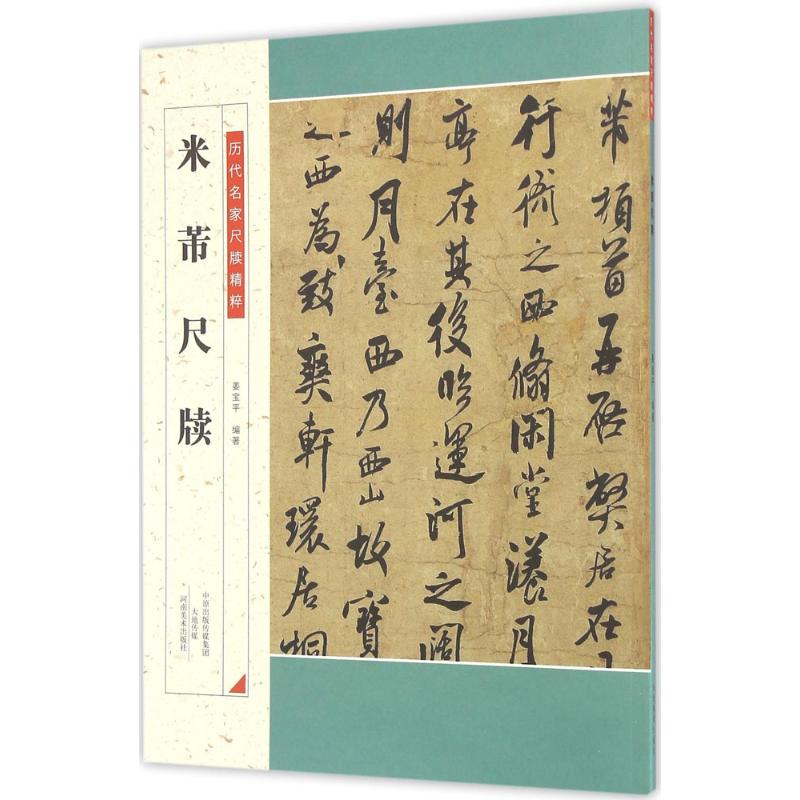 历代名家尺牍精粹
米芾尺牍
姜宝平 编著
中原出版传媒集团
大地传媒
河南美术出版社
芾頓首再启弊居在丹
行衙之西脩闲堂漾月
亭在其後临運河之阔
則月臺西乃西山故寶
之西為致爽軒環居桐